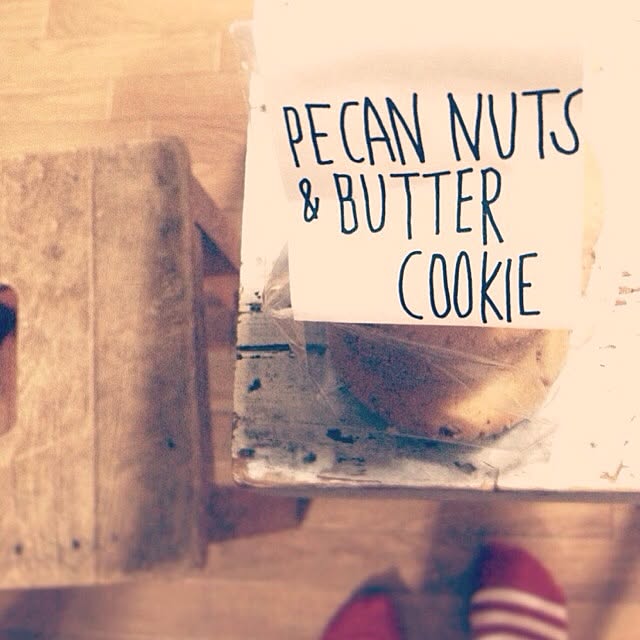 PECAN NUTS
& BUTTER
COOKIE